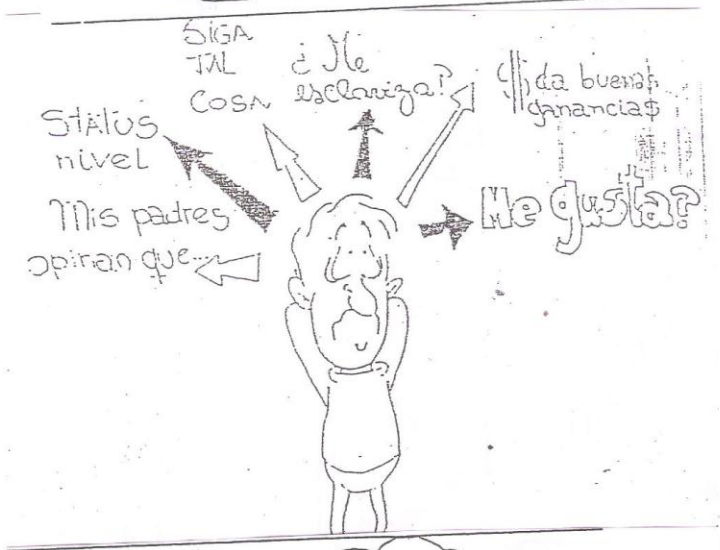 SIGA
TAL
COSA
¿Me
esclaviza?
$ da buenas
ganancia$
Status
nivel
Me gusta?
Mis padres
opinan que...